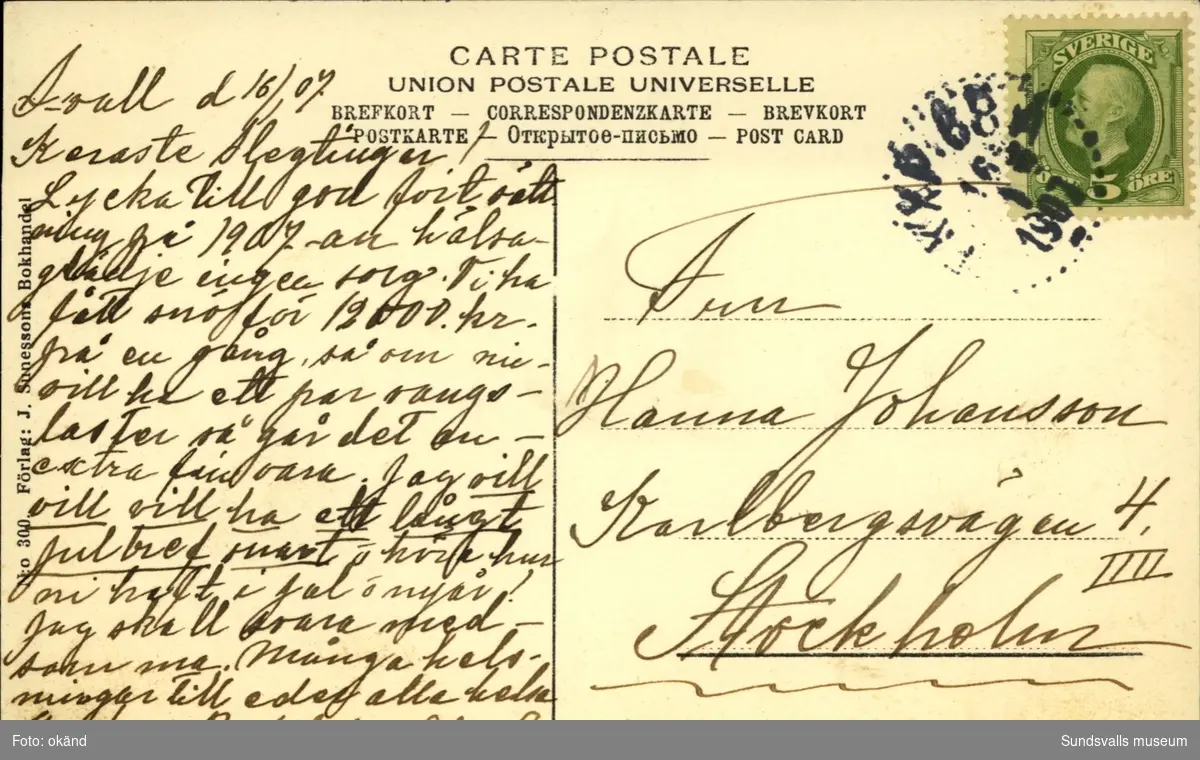 CARTE POSTALE
UNION POSTALE UNIVERSELLE
BREFKORT — CORRESPONDENZKARTE — BREVKORT
POSTKARTE — Открытое-письмо — POST CARD
SVERIGE
5 ÖRE
1907
S-vall d 16/ 07.
Käraste Slegtingar!
Lycka till god fort sätt
ning på 1907-an hälsa-
glädje ingen sorg. Vi ha
fått snö för 12000. kr.
på en gång, så om ni-
vill ha ett par vangs-
laster så går det an-
extra fin vara. Jag vill
vill vill ha ett långt
julbref snart, o höra hur
ni haft i jul o nyår!
Jag skall svara med-
som ma. Många hels-
ningar till eder alla helsa
N:o 300 Förlag: J. Sunessons Bokhandel
Fru
Hanna Johansson
Karlbergsvägen 4.
IIII
Stockholm
Foto: okänd
Sundsvalls museum